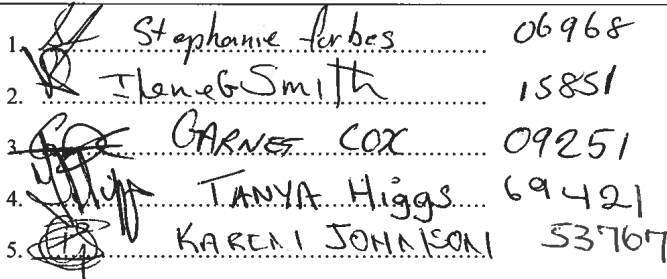 1. Stephanie Forbes 06968
2. Ilene G Smith 15851
3. GARNET COX 09251
4. TANYA Higgs 69421
5. KAREN JOHNSON 53767